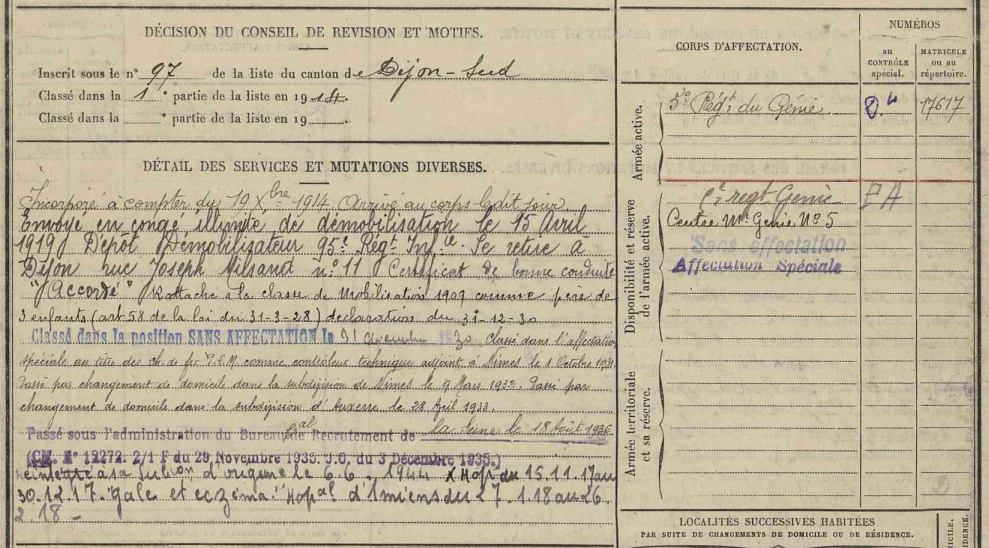 DÉCISION DU CONSEIL DE REVISION ET MOTIFS.
Inscrit sous le n° 97 de la liste du canton de Dijon-Sud
Classé dans la 1° partie de la liste en 1914.
Classé dans la ° partie de la liste en 19
DÉTAIL DES SERVICES ET MUTATIONS DIVERSES.
Incorporé à compter du 19 Xbre 1914 Arrivé au corps ledit jour
Envoyé en congé illimité de démobilisation le 15 Avril
1919 Dépôt Démobilisateur 95e Régt Infie Se retire à
Dijon rue Joseph Milsand n° 11 Certificat de bonne conduite
"Accordé" Rattaché à la classe de Mobilisation 1909 comme père de
3 enfants (art 58 de la loi du 31-3-28) déclaration du 31-12-30
Classé dans la position SANS AFFECTATION le 31 1930 Classé dans l'affectation
spéciale au titre des ch de fer P.L.M. comme contrôleur technique adjoint à Nimes le 1 Octobre 1931
Passé par changement de domicile dans la subdivision de Nimes le 9 Mars 1932. Passé par
changement de domicile dans la subdivision d'Auxerre le 28 Avril 1933.
Passé sous l'administration du Bureau de Recrutement de la Seine le 18 Août 1936
(CM. N° 12272. 2/1 F du 29 Novembre 1935. J.O. du 3 Décembre 1935.)
Réintégré à sa d'origine le 6.6. 1944 x Hop. du 15.11.17 au
30.12.17. "gale et eczéma." Hopal d'Amiens du 27.1.18 au 26.
2.18 -
CORPS D'AFFECTATION.
NUMÉROS
au CONTRÔLE spécial.
MATRICULE ou au répertoire.
Armée active.
5e Régt du Génie
17617
Disponibilité et réserve de l'armée active.
regt Génie
PA
Centre Génie N° 5
Sans affectation
Affectation Spéciale
Armée territoriale et sa réserve.
LOCALITÉS SUCCESSIVES HABITÉES
PAR SUITE DE CHANGEMENTS DE DOMICILE OU DE RÉSIDENCE.